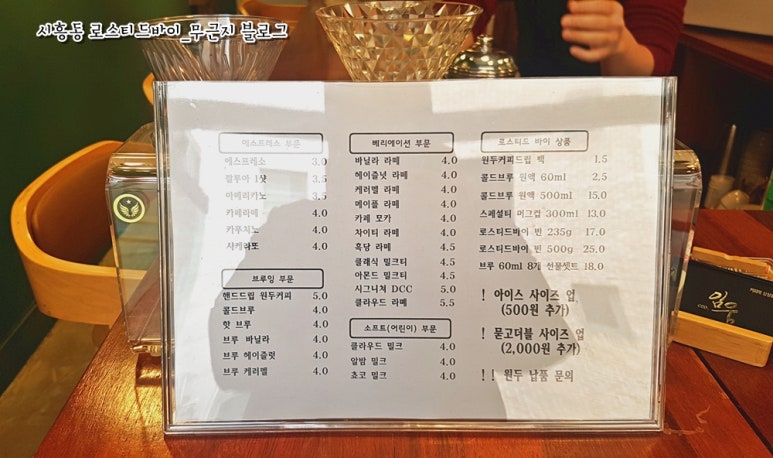 시흥동 로스티드바이_무근지 블로그
에스프레소 부문
에스프레소 3.0
깔루아 1샷 3.5
아메리카노 3.5
카페라떼 4.0
카푸치노 4.0
샤케라또 4.0
브루잉 부문
핸드드립 원두커피 5.0
콜드브루 4.0
핫 브루 4.0
브루 바닐라 4.0
브루 헤이즐럿 4.0
브루 케러멜 4.0
베리에이션 부문
바닐라 라떼 4.0
헤이즐넛 라떼 4.0
케러멜 라떼 4.0
메이플 라떼 4.0
카페 모카 4.0
차이티 라떼 4.0
흑당 라떼 4.0
클래식 밀크티 4.5
아몬드 밀크티 4.5
시그니쳐 DCC 5.0
클라우드 라떼 5.5
소프트(어린이) 부문
클라우드 밀크 4.0
알밤 밀크 4.0
쵸코 밀크 4.0
로스티드 바이 상품
원두커피드립 백 1.5
콜드브루 원액 60ml 2.5
콜드브루 원액 500ml 15.0
스페셜티 머그컵 300ml 13.0
로스티드바이 빈 235g 17.0
로스티드바이 빈 500g 25.0
브루 60ml 8개 선물셋트 18.0
! 아이스 사이즈 업
(500원 추가)
! 묻고더블 사이즈 업
(2,000원 추가)
! ! 원두 납품 문의